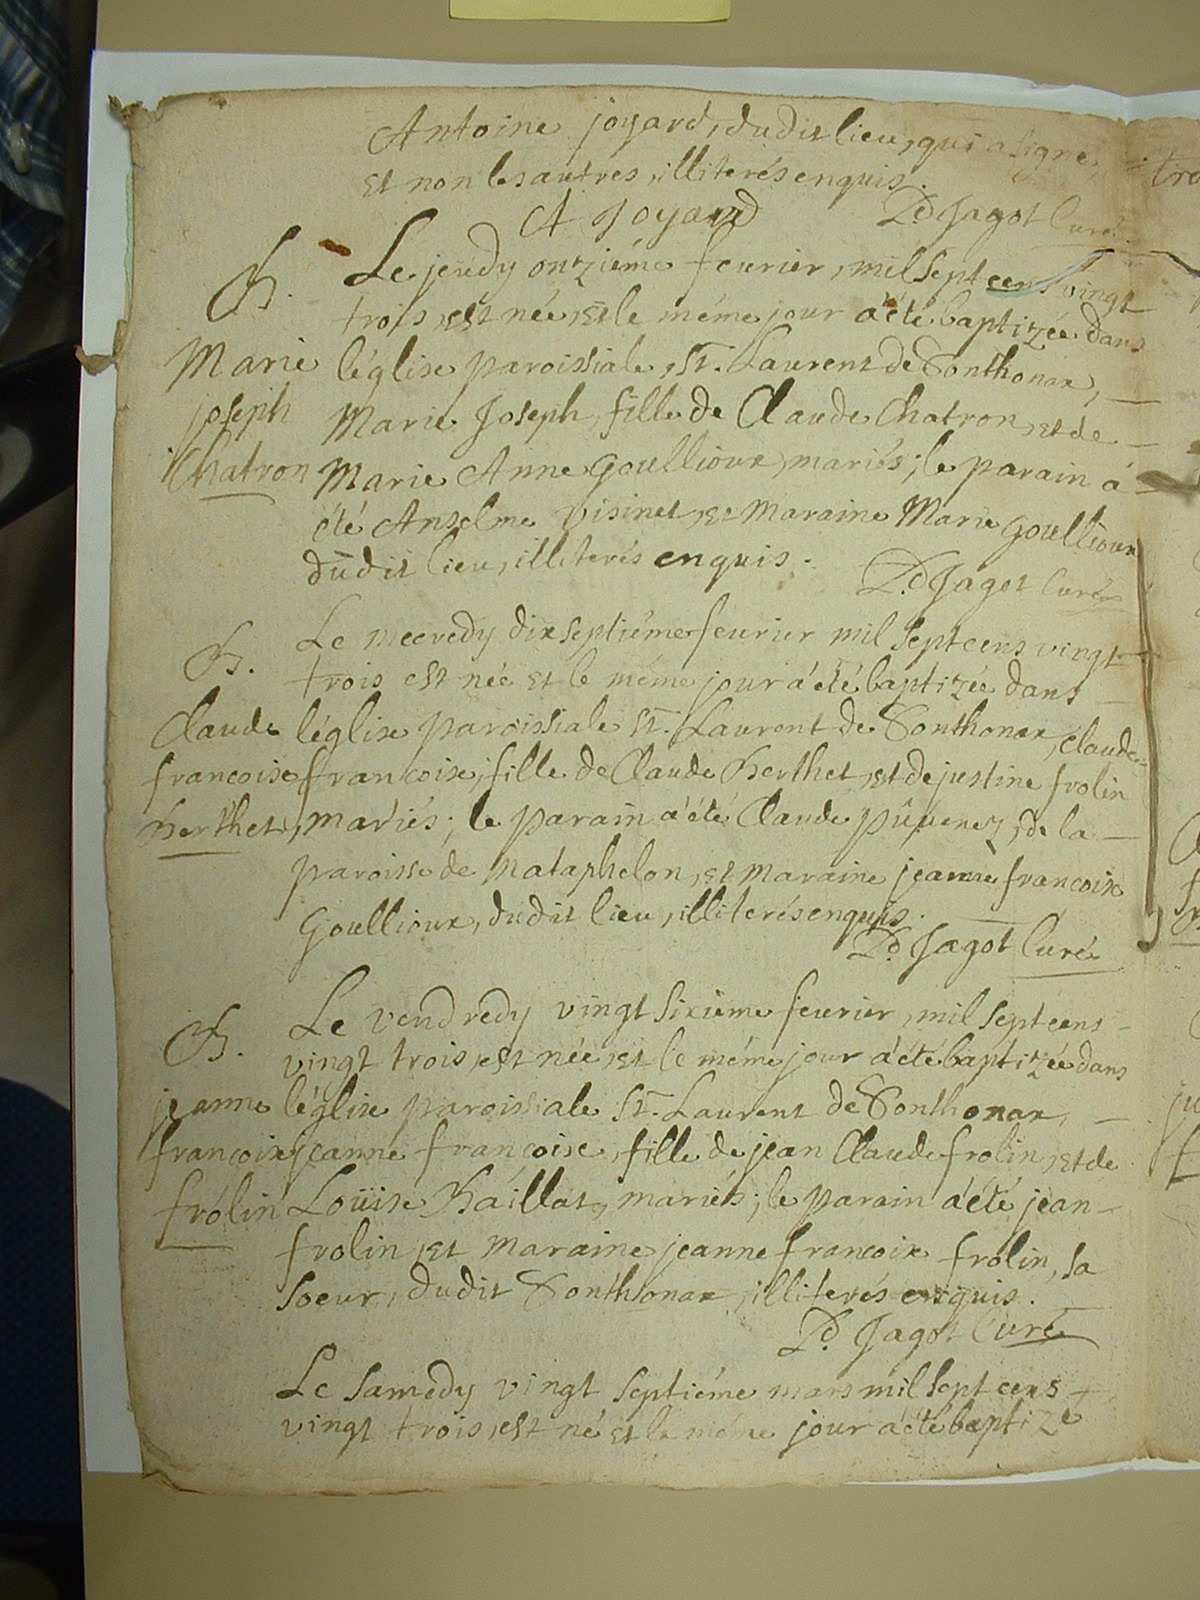 Antoine joyard, dudit lieu, qui a signé,
et non les autres, illiterés enquis.
A Joyard D.d Jagot Curé
B. Le jeudy onziéme feurier, mil sept cens vingt
trois, est née, et le méme jour a été baptizée dans
Marie léglise paroissiale, St. Laurent de Sonthonax,
joseph Marie Joseph, fille de Claude Chatron, et de
Chatron Marie Anne Goullioux, mariés; le parain á
été Anselme Visinet, et Maraine Marie Goullioux
dudit lieu, illiterés enquis.
D.d Jagot Curé
B. Le mecredy dix septiéme feurier mil sept cens vingt
trois est née et le méme jour á été baptizée dans
Claude léglise paroissiale St. Laurent de Sonthonax, Claude
francoise francoise, fille de Claude Berthet, et de justine frolin
Berthet, mariés; le parain a été Claude Pûvenez, de la
paroisse de Mataphelon, et maraine jeanne francoise
Goullioux, dudit lieu, illiterés enquis.
D.d Jagot Curé
B. Le vendredy vingt sixiéme feurier, mil sept cens
vingt trois, est née, et le méme jour a été baptizée dans
jeanne léglise paroissiale St. Laurent de Sonthonax,
francoise jeanne francoise, fille de jean Claude frolin, et de
frólin Loüise Baillat, mariés; le parain a été jean
frolin, et maraine jeanne francoise frólin, sa
soeur, dudit Sonthonax, illiterés enquis.
D.d Jagot Curé
Le samedy vingt septiéme mars mil sept cens
vingt trois, est né et le méme jour a été baptizé